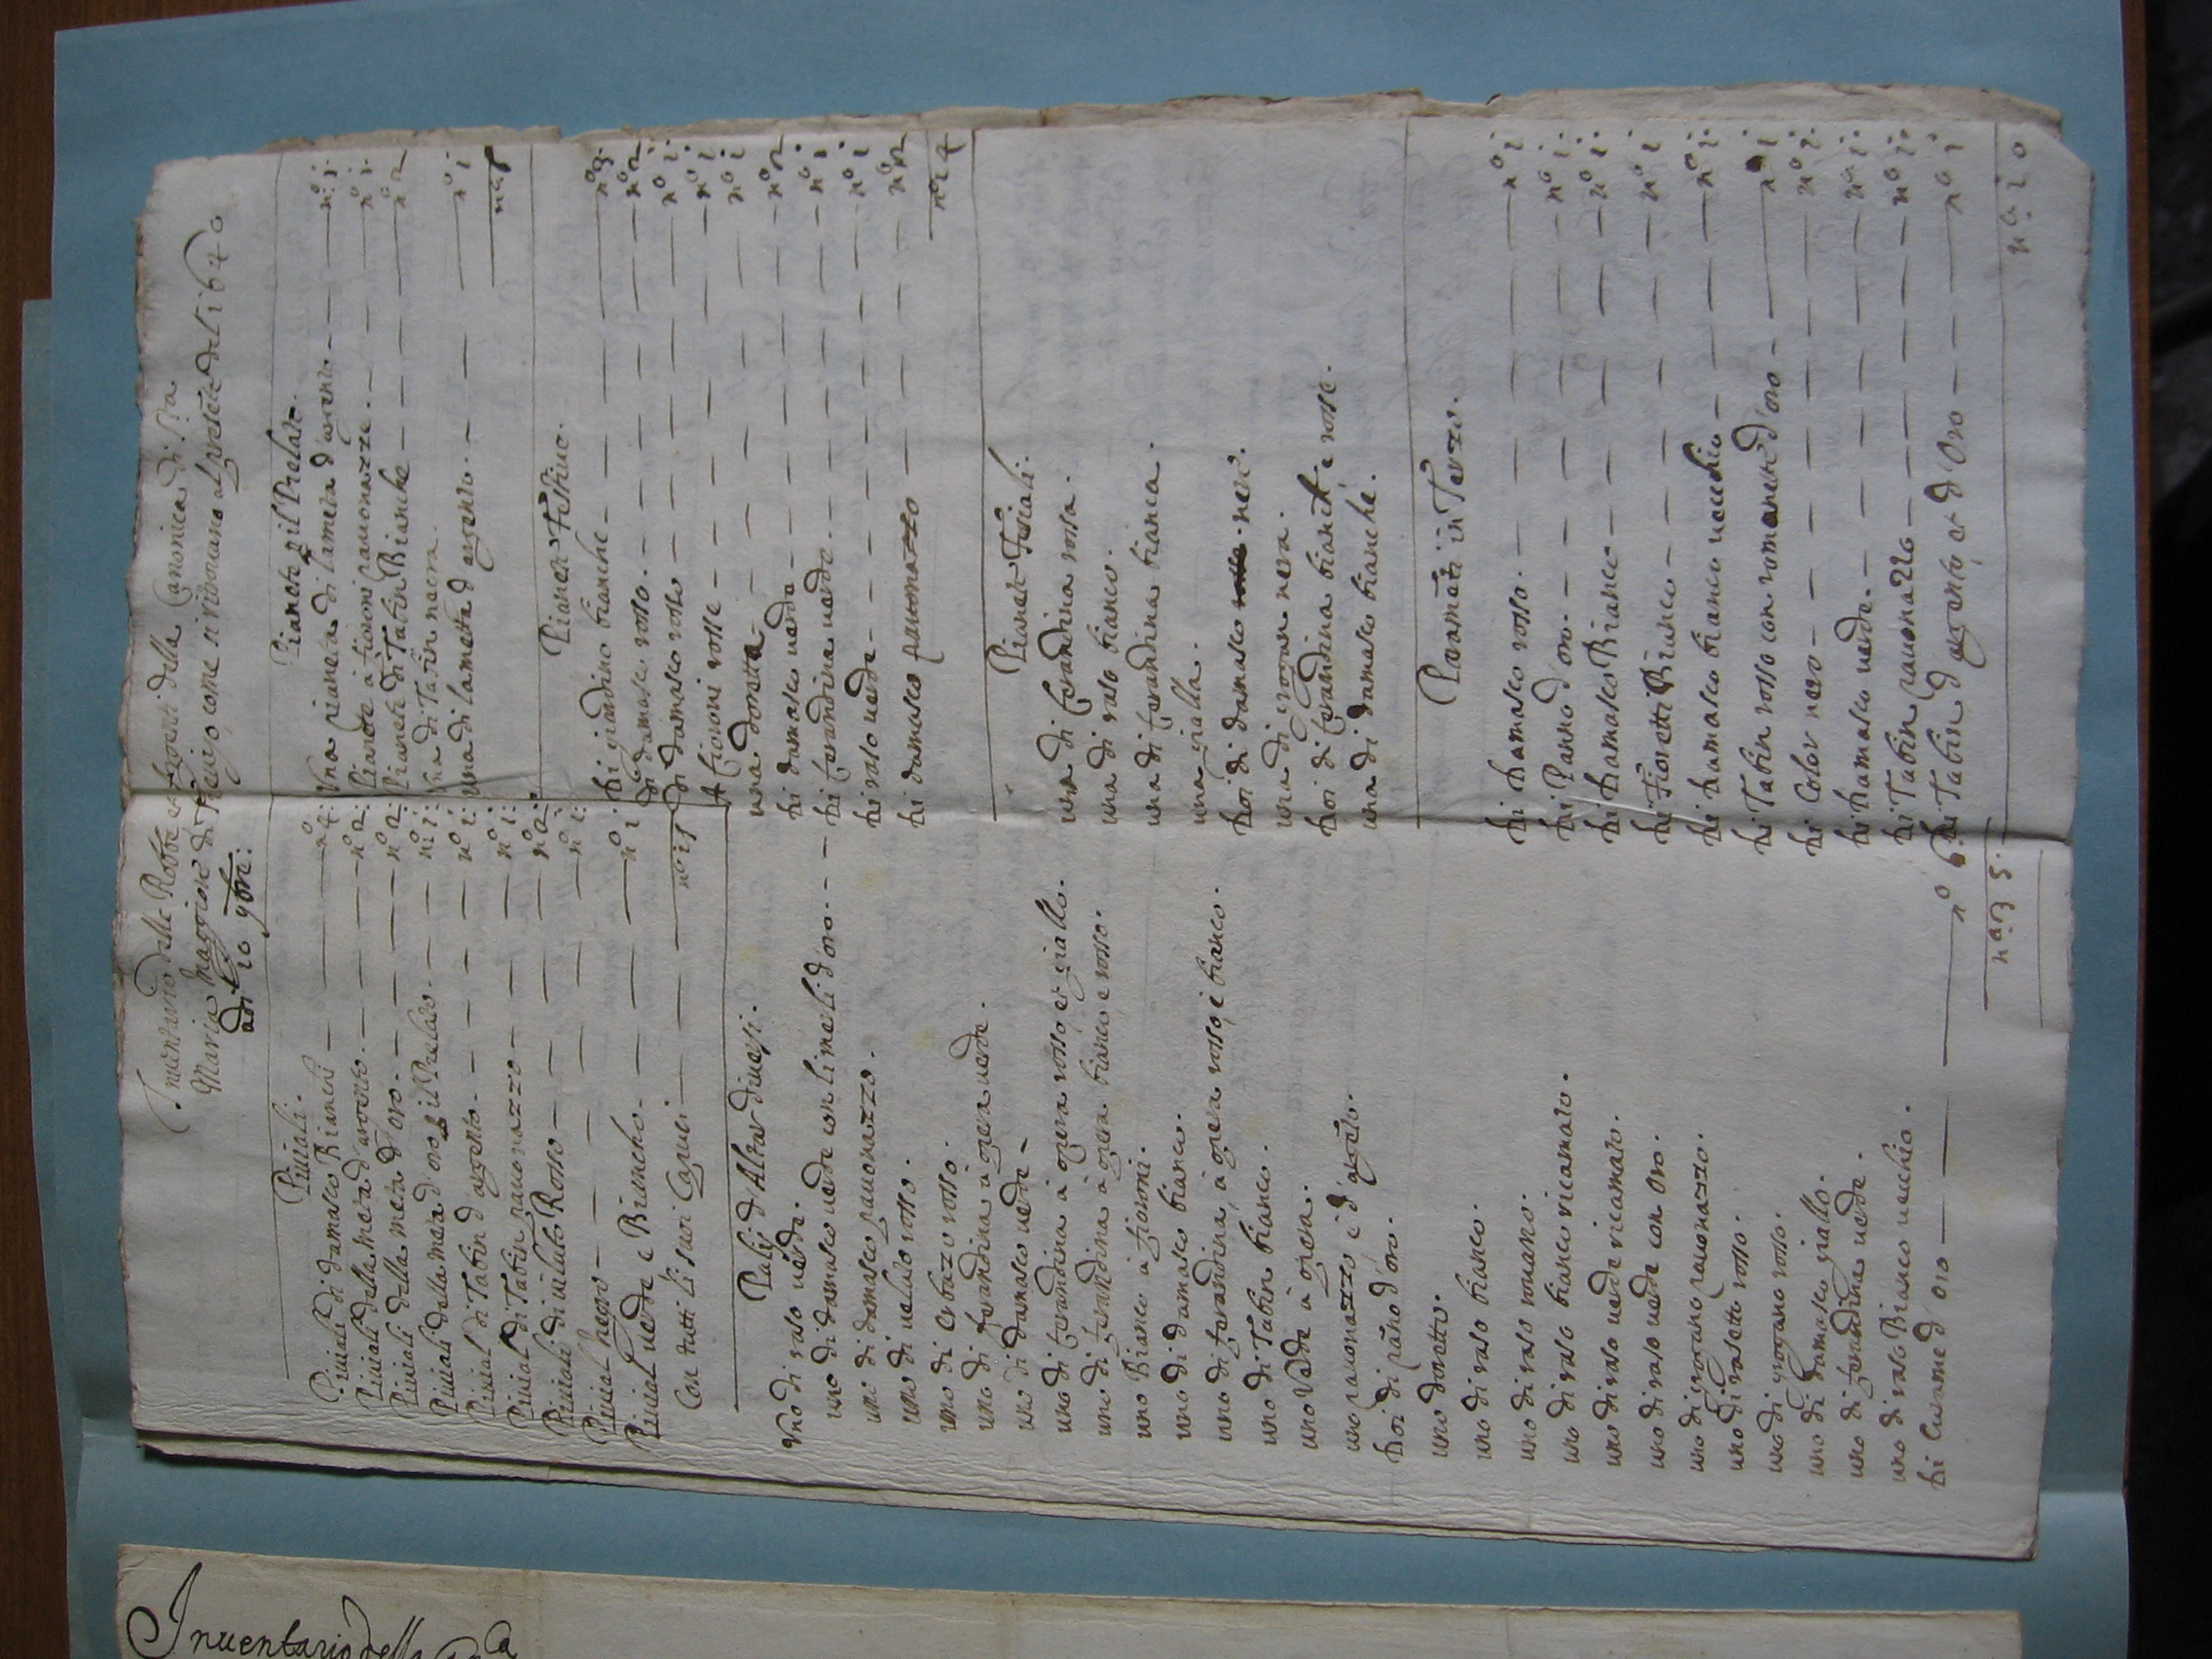 Inuentario delle Robbe della Canonica di S.ta
Maria Maggiore di Treuigo, come si ritrouano al presẽte del i640
adi io 9bre:
Piuiali.
Piuiali di damasco Bianchi — n.º 4.
Piuiali della meza d'argento. — n.º 2.
Piuiali della meza d'oro. — n.º 2.
Piuiali della meza d'oro p il Prelato. — n.º i:
Piuial di Tabin d'argento. — n.º i:
Piuial di Tabin pauonazzo — n.º i:
Piuiali di uiluto Rosso — n.º 2:
Piuial negro — n.º i:
Piuial uerde e Biancho. — n.º i
Con tutti li suoi Capuci — n.º i5
Palij d'Altar diuersi.
Vno di raso uerde.
uno di damasco uerde con li meli d'oro. —
uno di damasco pauonazzo.
uno di uelato rosso.
uno di rosso.
uno di ferandina à opera uerde.
uno di damasco uerde —
uno di ferandina à opera rosso, et giallo.
uno di ferandina à opera bianco e rosso.
uno Bianco à fioroni.
uno di damasco bianco.
uno di ferandina, à opera rosso, è bianco.
uno di Tabin bianco.
uno Verde à opera.
uno pauonazzo è d'argẽto.
Doi di pãno d'oro.
uno doretto.
uno di raso bianco.
uno di raso rouano.
uno di raso bianco ricamato.
uno di raso uerde ricamato.
uno di raso uerde con oro.
uno di grograno pauonazzo.
uno di rasetto rosso.
uno di grograno rosso.
uno di damasco giallo.
uno di ferandina uerde.
uno di raso Bianco uechio.
Di Curame d'oro — n.º 6.
n.º 35.
Pianete p il Prelato.
Vna pianeta di lameta d'argento — n.º i.
Pianeta à fioroni pauonazze. — n.º i.
Pianete di Tabin Bianche — n.º 2
Vna di Tabin negra.
Vna di lametta d'argento. — n.º i
n.º 5
Pianete Festiue.
Di giardino bianche — n.º 3.
Di damasco rosso. — n.º 2
Di damasco rosso — n.º i.
A fioroni rosse — n.º i.
una doretta — n.º i
Di damasco uerde — n.º 2
Di ferandina uerde. — n.º i.
Di raso uerde — n.º i
Di damasco pauonazzo — n.º 2
n.º i4
Pianete Feriali.
una di ferandina rossa.
una di raso bianco.
una di ferandina bianca.
una gialla.
Doi di damasco nere.
una di grogran nera.
Doi di ferandina bianche e rosse.
una di damasco bianche.
Paramẽti in Terzo.
Di Damasco rosso. — n.º i
Di Panno d'oro — n.º i.
Di Damasco Bianco — n.º i.
Di Fioretti Bianco — n.º i
Di Damasco bianco uecchio — n.º i.
Di Tabin rosso con romanene d'oro — n.º i
Di Color nero — n.º i.
Di Damasco uerde. — n.º i.
Di Tabin pauonazo — n.º i.
Di Tabin d'argento, et d'Oro — n.º i
n.º i0
Inuentario della